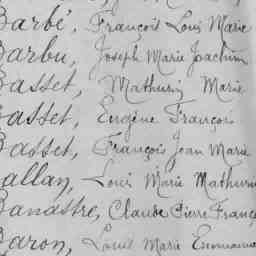 Barbé, François Louis Marie
Barbu, Joseph Marie Joachim
Basset, Mathurin Marie
Basset, Eugène François
Basset, François Jean Marie
Ballan, Louis Marie Mathurin
Banastre, Claude Pierre Franço
Baron, Louis Marie Emmanue